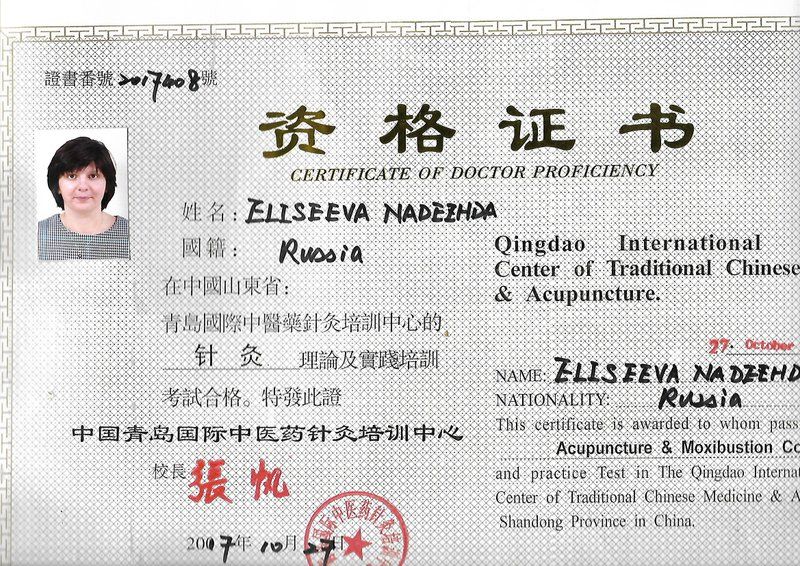 證書番號 2017408 號
资格证书
CERTIFICATE OF DOCTOR PROFICIENCY
姓名: ELISEEVA NADEZHDA
國籍: Russia
在中國山東省:
青島國際中醫藥針灸培訓中心的
针灸 理論及實踐培訓
考試合格。特發此證
中国青岛国际中医药针灸培训中心
校長 張帆
2017年10月27日
国际中医药针灸培训
Qingdao International
Center of Traditional Chinese
& Acupuncture.
27. October
NAME: ELISEEVA NADEZHD
NATIONALITY: Russia
This certificate is awarded to whom pass
Acupuncture & Moxibustion Co
and practice Test in The Qingdao Internat
Center of Traditional Chinese Medicine & A
Shandong Province in China.